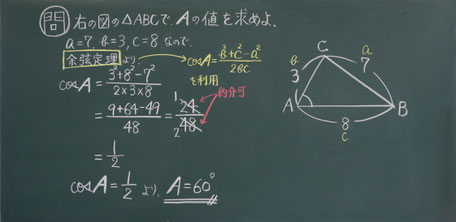 問 右の図の△ABCで、Aの値を求めよ.
a=7, b=3, c=8 なので.
余弦定理より
cosA=b²+c²-a²/2BC
を利用
cosA=3²+8²-7²/2×3×8
=9+64-49/48=24/48
1
2
約分可
=1/2
cosA=1/2 より, A=60°
C
b
3
a
7
A
B
8
c